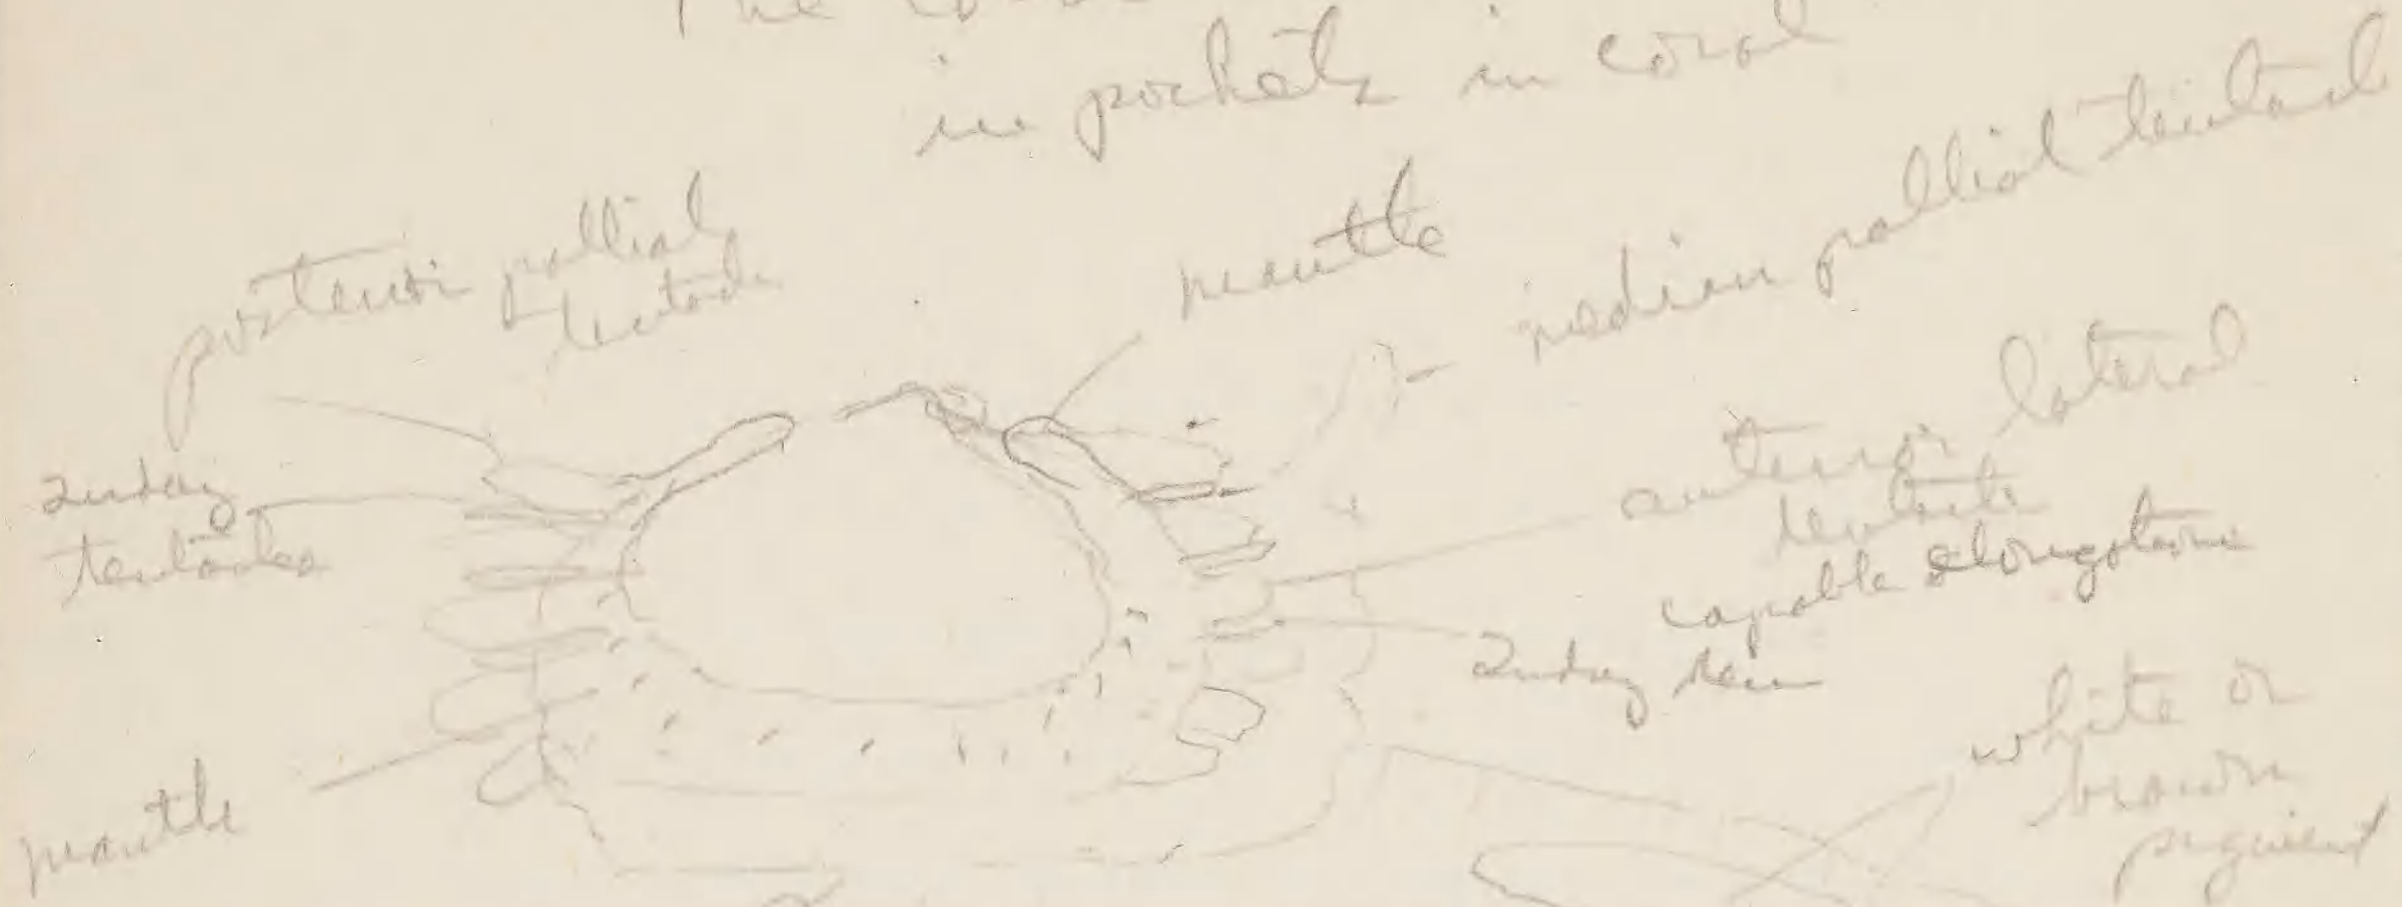 The
in pockets in coral
posterior pallial
tentacle
mantle
median pallial tentacle
2nday
tentacles
anterior lateral
tentacle
capable elongations
2nday
white or
brown
pigment
mantle